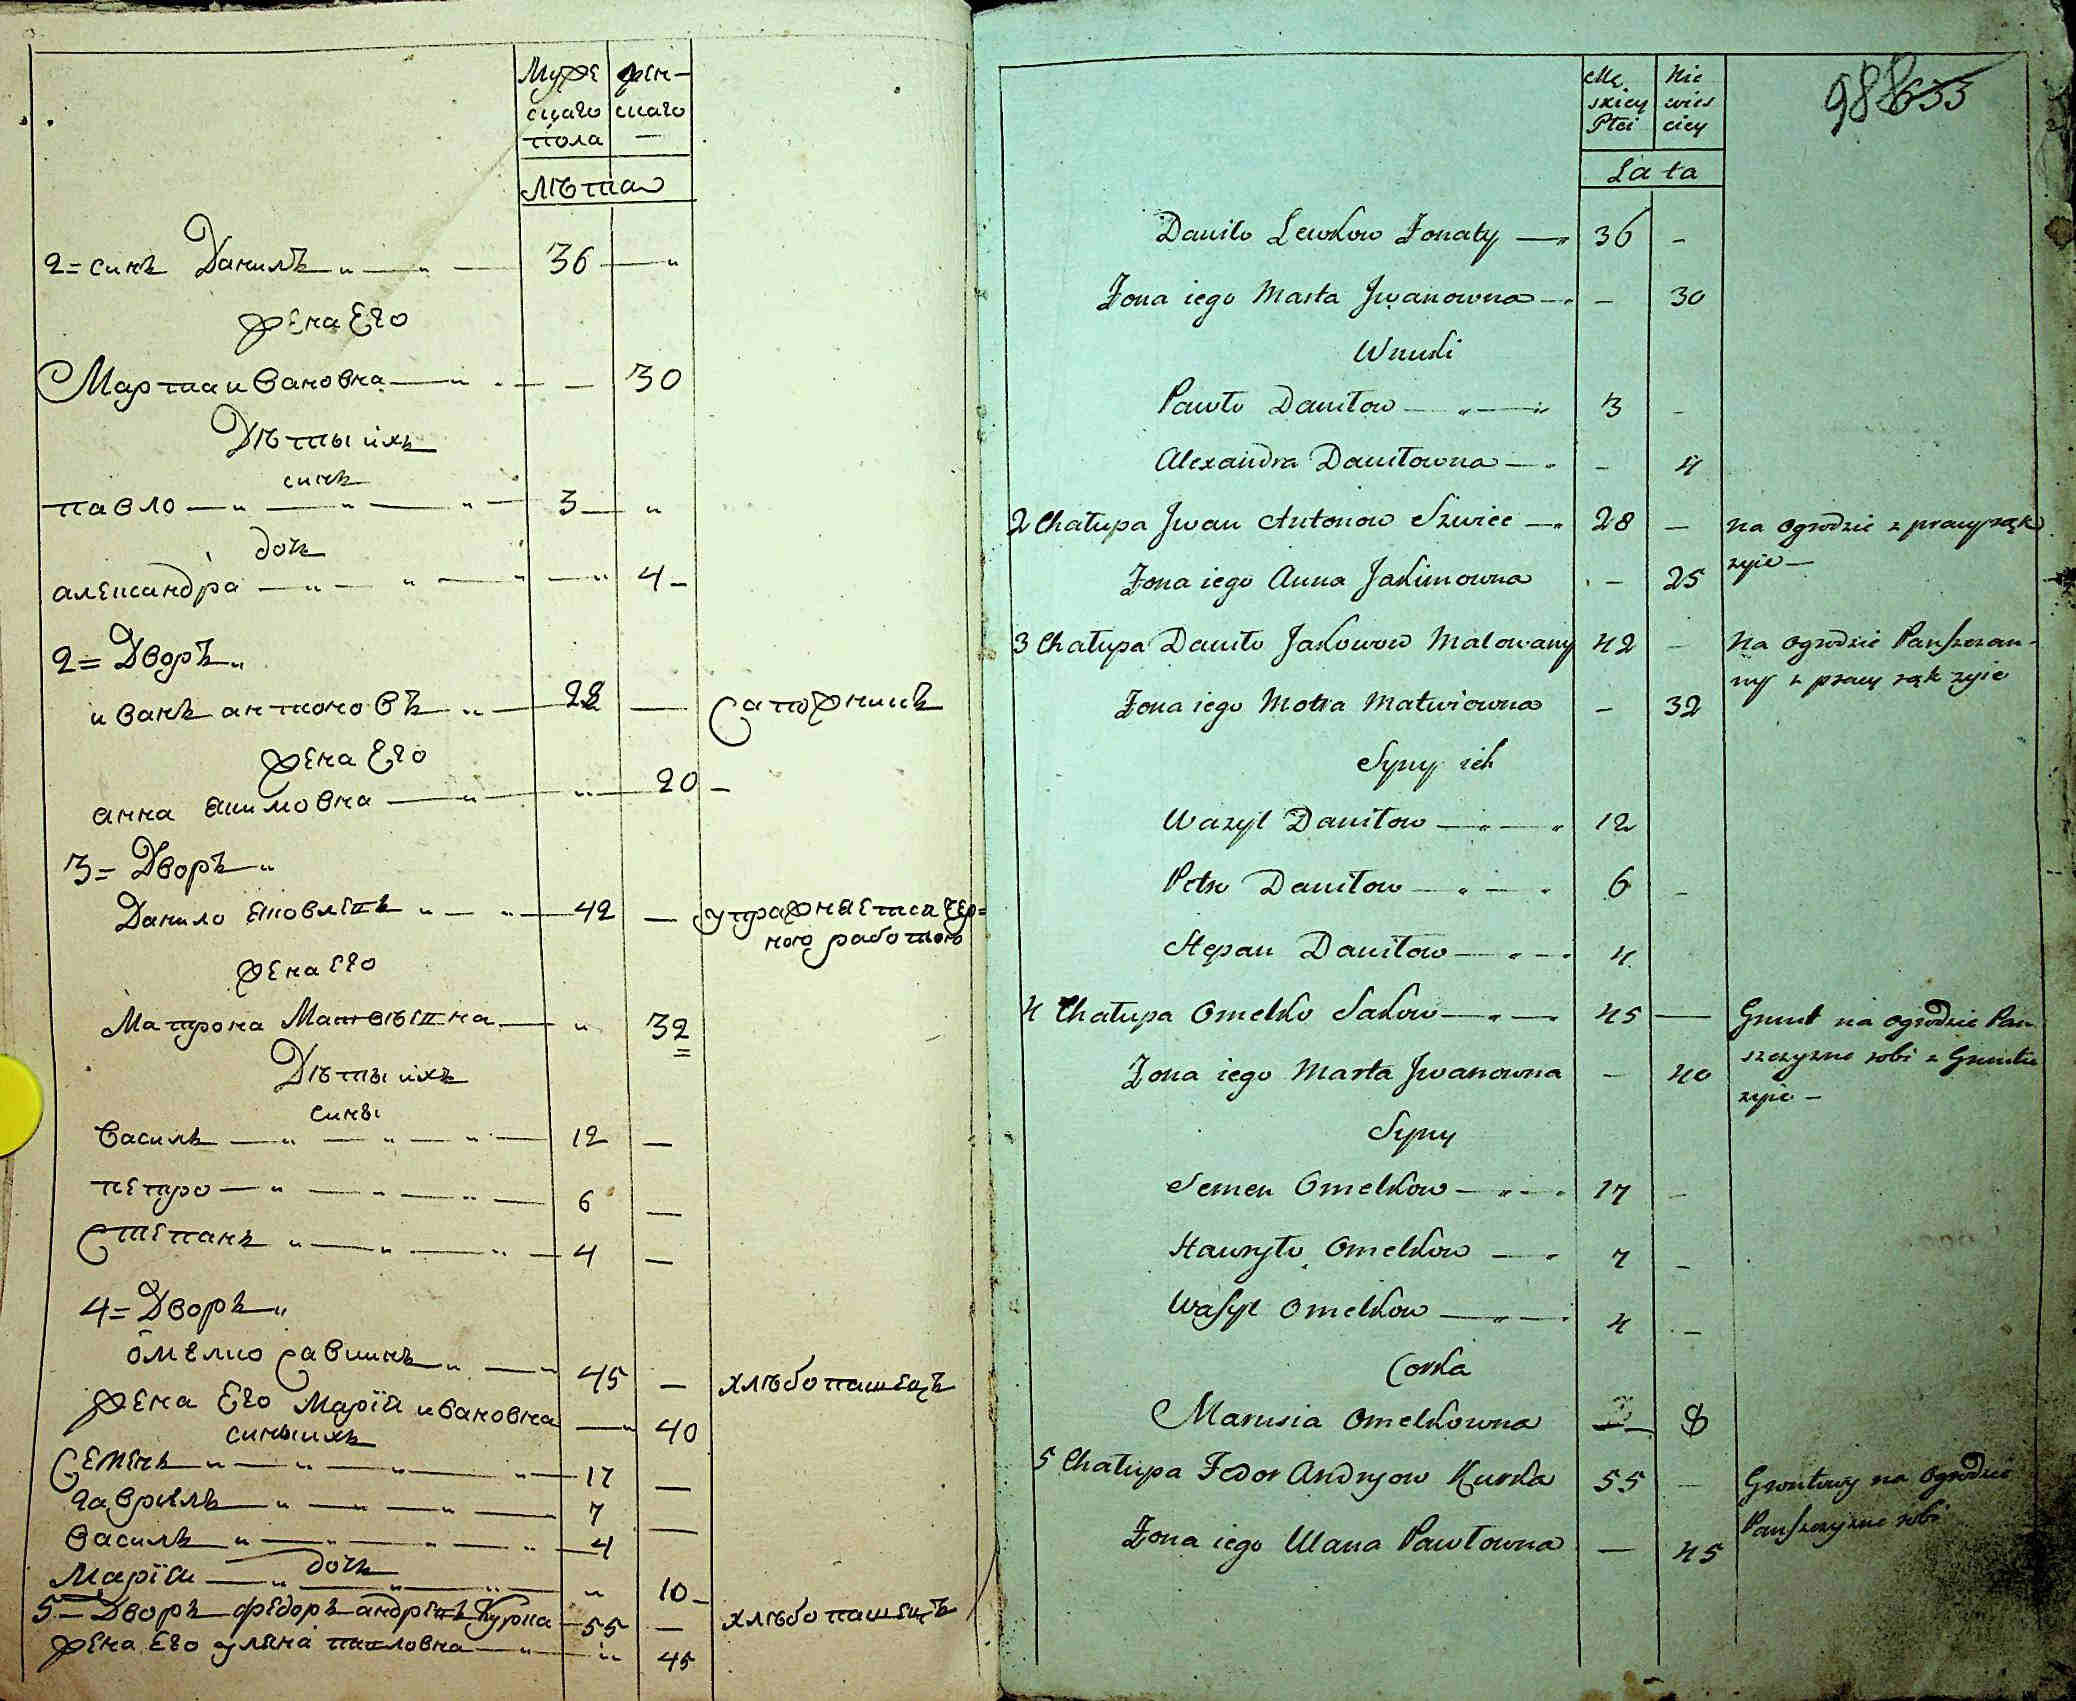 Муже
скаго
пола
жен-
скаго
—
лѣта
2= синъ Данилъ „ — „ — 36 — „
жена Его
Марта ивановна — „ — — 30
Дѣты ихъ
синъ
павло — „ — „ — 3 — „
дочь
александра — „ — „ — „ — „ 4 —
2= Дворъ „
иванъ антоновъ „ — 28 — Сапожникъ
жена Его
анна якимовна — „ — „ — 20 —
3= Дворъ „
Данило яковлевъ „ — „ — 42 — упражняется чер=
ною работою
жена его
Матрона Матвѣевна — „ 32
Дѣты ихъ
сины
василь — „ — „ — „ — 12 —
петро — „ — „ — „ — 6 —
Степанъ „ — „ — „ — 4 —
4= Дворъ „
омелко савкинъ „ — 45 — хлѣбопашецъ
жена Его Марїя ивановна — „ 40
сины ихъ
Семенъ „ — „ — „ — „ — 17 —
гаврилъ „ — „ — „ — 7 —
василь „ — „ — „ — 4
дочь
Марїя — „ — „ — „ — „ 10 —
5= Дворъ федоръ андреевъ Курка — 55 — хлѣбопашецъ
жена Его уляна павловна — „ — „ 45
Mę
skiey
Płci
Nie
wies
ciey
Lata
988 633
Daniło Lewkow Żonaty — „ 36 —
Żona iego Marta Jwanowna — „ — 30
Wnuki
Pawło Daniłow — „ — „ 3 —
Alexandra Daniłowna — „ — 4
2 Chałupa Jwan Antonow Szwiec — „ 28 — na ogrodzie z pracy rąk
żyie —
Żona iego Anna Jakimowna — 25
3 Chałupa Daniło Jakowow Malowany 42 — Na ogrodzie Panszczan-
ny z pracy rąk zyie
Żona iego Motra Matwiowna — 32
Syny ich
Wazyl Daniłow — „ — „ 12
Petro Daniłow — „ — „ 6 —
Stepan Daniłow — „ — „ 4
4 Chałupa Omelko Sakow — „ — 45 — Grunt na ogrodzie Pan
szczyzne robi z Gruntu
zyie —
Żona iego Marta Jwanowna — 40
Syny
Semen Omelkow — „ — „ 17 —
Hawryło Omelkow — „ 7 —
Wasyl Omelkow — „ — „ 4 —
Corka
Marusia Omelkowna — 8
5 Chałupa Fedor Andryow Kurka 55 — Gruntowy na Ogrodzie
Panszczyzne robi
Żona iego Ulana Pawłowna — 45